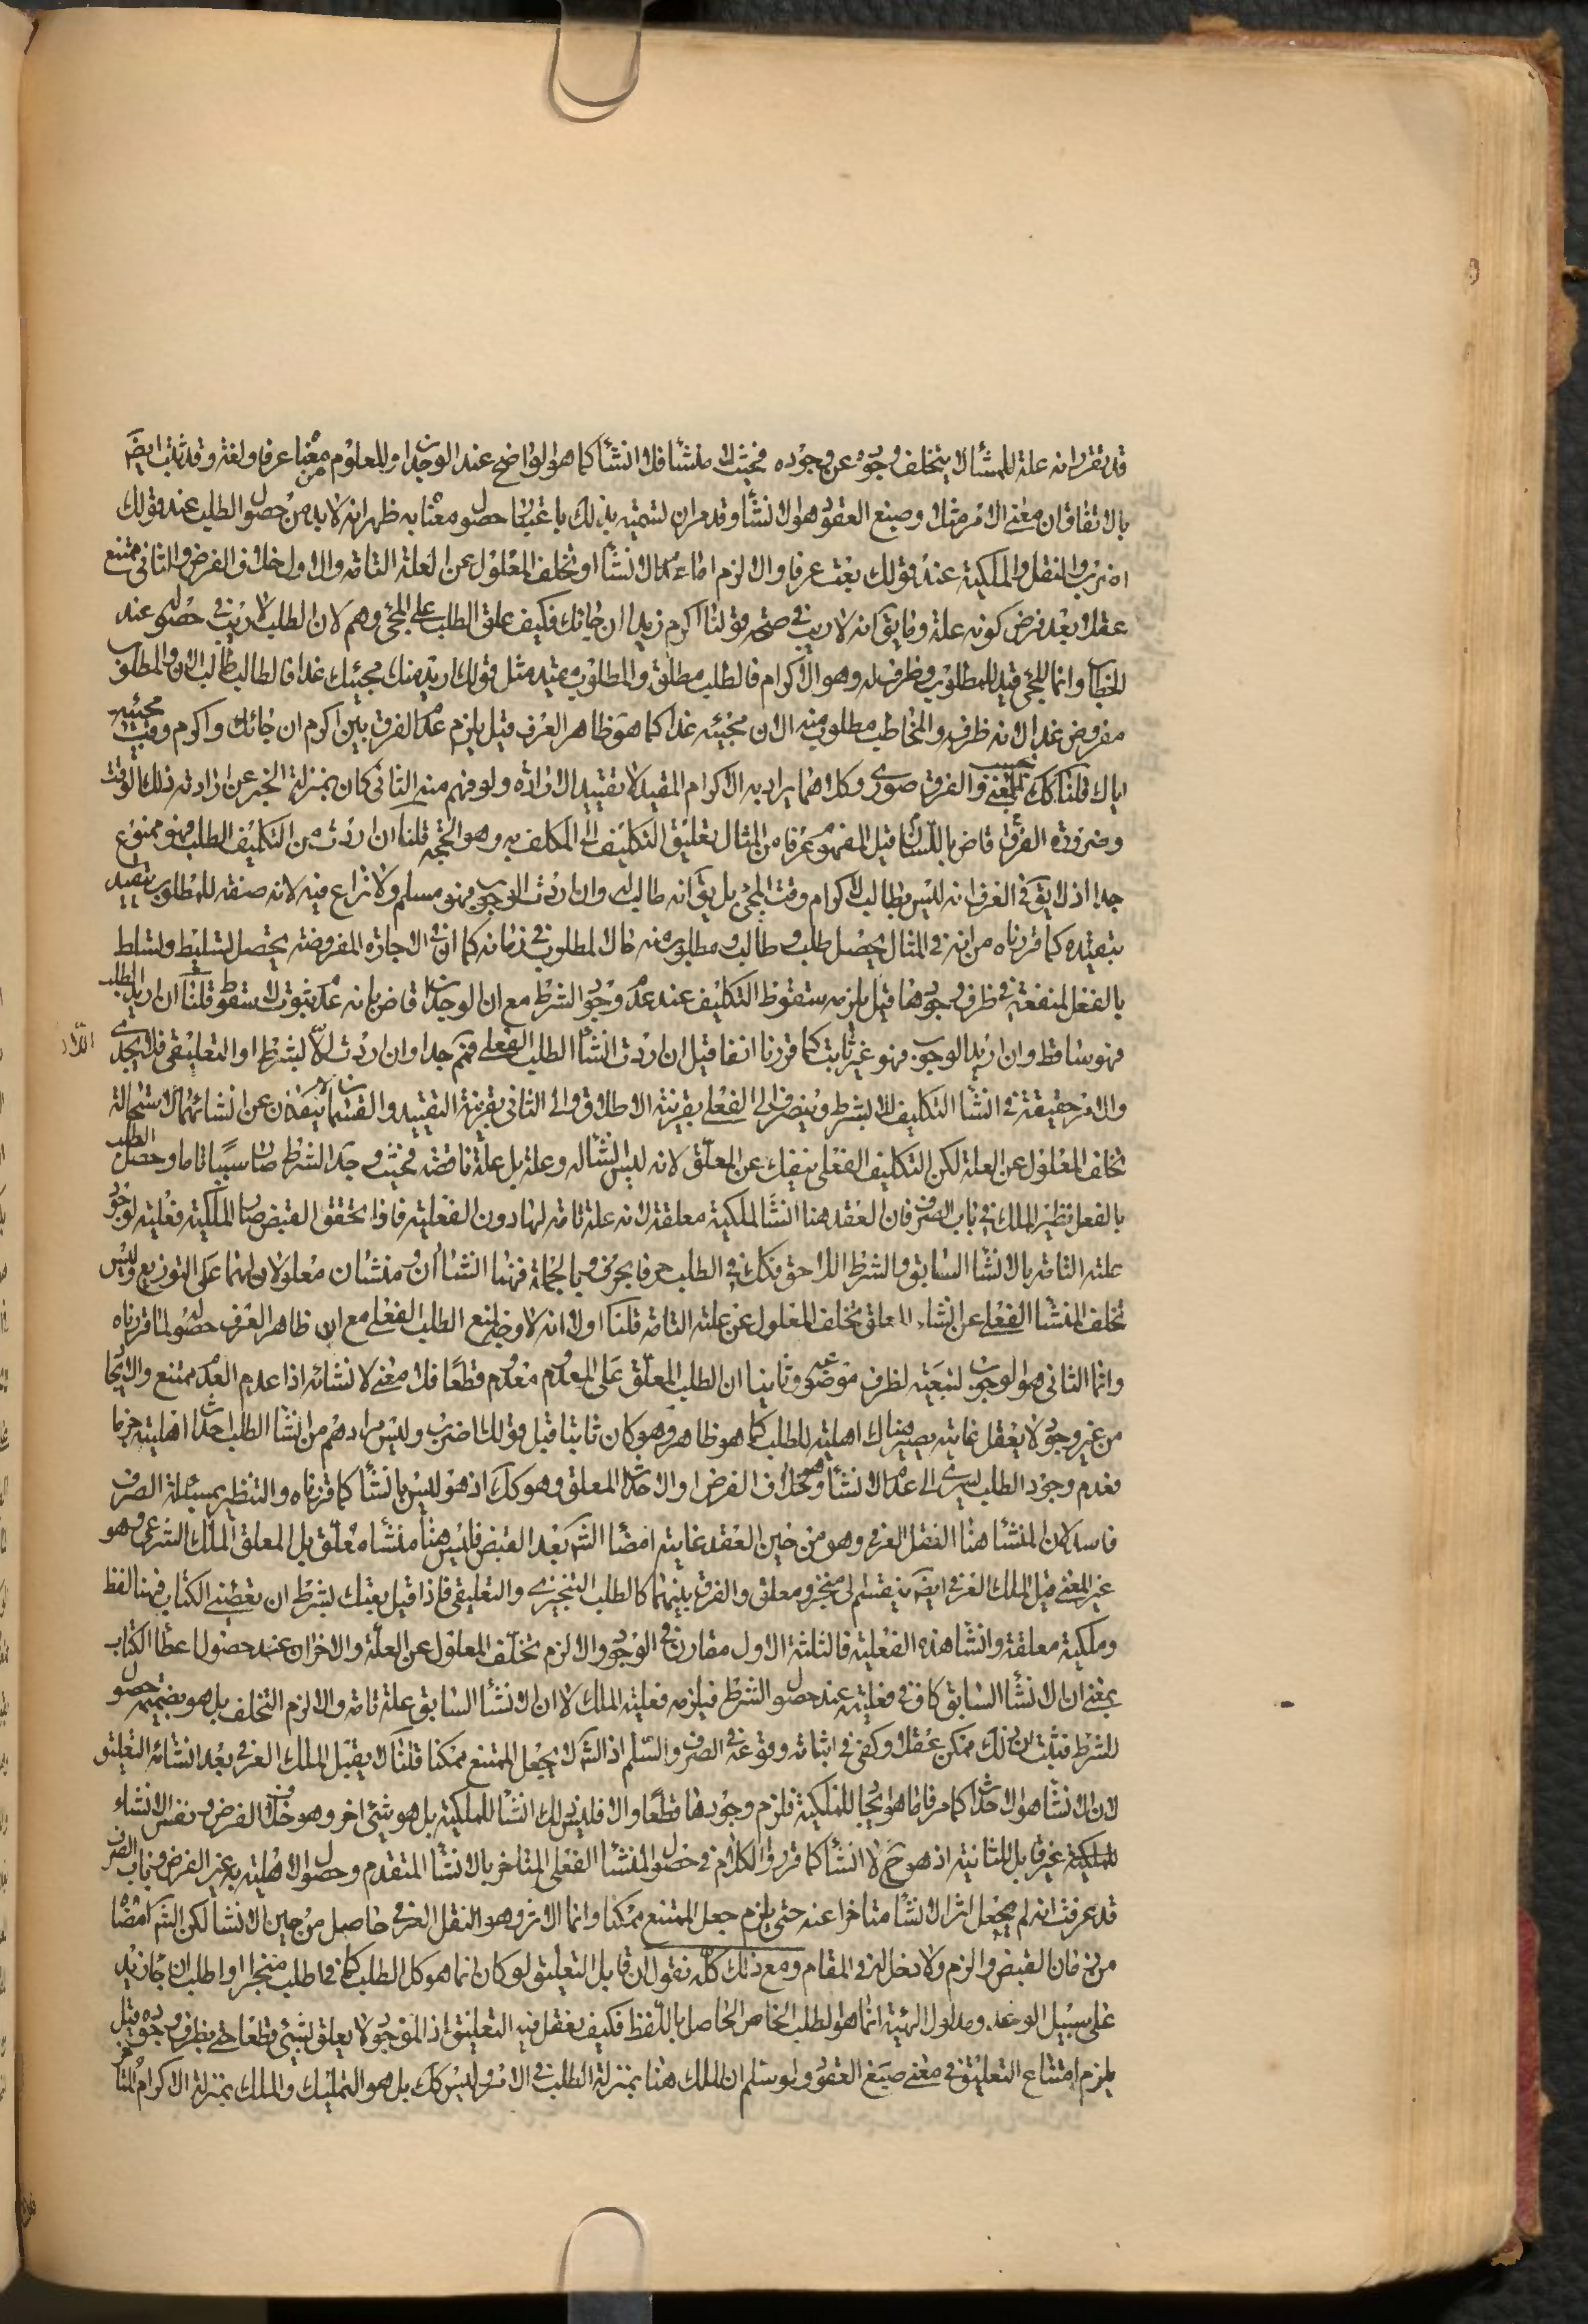 قد تقرر انه علة للمنشأ لا يتخلف وجوده عن وجوده فحيث لا منشأ فلا انشأ كما هو الواضح عند الوجدان والمعلوم من معناه عرفا ولغة وقد ثبت ايضا
بالاتفاق ان معنى الامر مثلا وصيغ العقود هو الانشأ وقد مر ان تسميته بذلك باعتبار حصول معناه به ظهر انه لا بد من حصول الطلب عند قولك
اضرب والنقل والملكية عند قولك بعت عرفا والا لزم اما عدم الانشأ او تخلف المعلول عن العلة التامة والاول خلاف الفرض والثانى ممتنع
عقلا بعد فرض كونه علة وما يق انه لا ريب فى صحة قولنا اكرم زيدا ان جائك فكيف علق الطلب على المجئ وهم لان الطلب لا ريب فى حصوله عند
الخطاب وانما المجئ قيد للمطلوب وظرف له وهو الاكرام فالطلب مطلق والمطلوب مقيد مثل قولك اريد منك مجيئك غدا فالطالب طالب الان والمطلوب
مفروض غدا لانه ظرفه والمخاطب مطلوب منه الان مجيئه غدا كما هو ظاهر العرف قيل يلزم عدم الفرق بين اكرم ان جائك واكرم وقت مجيئه
اياك قلنا كك بحسب المعنى والفرق صورى وكلاهما يراد به الاكرام المقيد لا تقييد الارادة ولو فهم منه الثانى كان بمنزلة الخبر عن ارادته ذلك الوقت
وضرورة الفرق قاض باللسان قيل المفهوم عرفا من المثال تعليق التكليف لا المكلف به وهو الحجة قلنا ان اردت من التكليف الطلب فهو ممنوع
جدا اذ لا يق فى العرف انه ليس بطالب الاكرام وقت المجئ بل يق انه طالب له وان اردت الوجوب فهو مسلم ولا نزاع فيه لانه صفة للمطلوب يتقيد
بتقيده كما قررناه من انه فى المثال يحصل طلب وطالب ومطلوب منه حالا لمطلوب فى زمانه كما ان فى الاجارة المفروضة يحصل تسليط وتسلط
بالفعل لمنفعة فى ظرف وجودها قيل يلزمه سقوط التكليف عند عدم وجود الشرط مع ان الوجدان قاض بانه عدم ثبوت لا سقوط قلنا ان اريد الطلب
فهو ساقط وان اريد الوجوب فهو غير ثابت كما قررنا انفا قيل ان اردت انشأ الطلب الفعلى فنعم جدا وان اردت الاول بشرط او التعليقى فلا يجدى
والامر حقيقة فى انشأ التكليف لا بشرط وينصرف الى الفعلى بقرينة الاطلاق والى الثانى بقرينة التقييد والقسمان لا ينفكان عن انشائهما لاستحالة
تخلف المعلول عن العلة لكن التكليف الفعلى ينفك عن المعلق لانه ليس انشأ له وعلة بل علة ناقصة فحيث وجد الشرط صار سببا تاما وحصل الطلب
بالفعل نظير الملك فى باب الصرف فان العقد هنا انشأ الملكية معلقة لانه علة تامة لها دون الفعلية فاذا تحقق القبض صار الملكية فعلية لوجود
علته التامة بالانشأ السابق والشرط اللاحق فكك فى الطلب حرفا بحرف وبالجملة فهنا انشاأن ومنشأن معلولان لهما على التوزيع وليس
تخلف المنشأ الفعلى عن انشاء المعلق تخلف المعلول عن علته التامة قلنا اولا انه لا وجه لمنع الطلب الفعلى مع ان ظاهر العرف حصوله لما قررناه
وانما الثانى هو الوجوب لتبعيته لظرف موضوعه وثانيا ان الطلب المعلق على المعدوم معدوم قطعا فلا معنى لانشائه اذا عدم العدم ممتنع والايجاد
من غير وجود لا يعقل غايته يصير هناك اهلية للطلب كما هو ظاهر وهو كان ثابتا قبل قولك اضرب وليس مرادهم من انشأ الطلب احداث اهليته جزما
فعدم وجود الطلب يسرى الى عدم الانشأ وهو خلاف الفرض او الاحداث المعلق وهو كك اذ هو ليس بانشأ كما قررناه والتنظير بمسئلة الصرف
فاسد لان المنشأ هنا النقل العرفى وهو من حين العقد غايته امضأ الشرع بعد القبض فليس هنا منشأه معلق بل المعلق الملك الشرعى وهو
غير المعنى قيل الملك العرفى ايضا ينقسم الى منجز ومعلق والفرق بينهما كالطلب التنجيزى والتعليقى فاذا قيل بعتك بشرط ان تعطينى الكتاب فهنا لفظ
وملكية معلقة وانشأ هذه الفعلية فالثلثة الاول مقارن فى الوجود والا لزم تخلف المعلول عن العلة والاخران عند حصول اعطأ الكتاب
بمعنى ان الانشأ السابق كاف فى فعليته عند حصول الشرط فيلزمه فعلية الملك لا ان الانشأ السابق علة تامة والا لزم التخلف بل هو بضميمة حصول
للشرط فثبت ان ذلك ممكن عقلا وكفى فى اثباته وقوعه فى الصرف والسلم اذ الشرع لا يجعل الممتنع ممكنا قلنا لا يقبل الملك العرفى بعد انشائه التعليق
لان الانشأ هو الاحداث كما مر فاما هو ايجاد للملكية فلزم وجودها قطعا والا فليس ذلك انشأ للملكية بل هو شئ اخر وهو خلاف الفرض ونفس الانشاء
للملكية غير قابل للثانية اذ هو ح لا انشأ كما قرر والكلام فى حصول المنشأ الفعلى المتاخر بالانشأ المتقدم وحصول الاهلية به غير الفرض وباب الصرف
قد عرفت انه لم يجعل اثر الانشأ متاخرا عنه حتى يلزم جعل الممتنع ممكنا وانما الاثر وهو النقل العرفى حاصل من حين الانشأ لكن الشرع امضأه
من زمان القبض والزم ولا دخل له فى المقام ومع ذلك كله نقول ان قابل التعليق لو كان انما هو كل الطلب كما فى اطلب منجزا واطلب ان جاء زيد
على سبيل الوعد ومدلول الهيئة انما هو الطلب الخاص الحاصل باللفظ فكيف يعقل فيه التعليق اذ الموجود لا يعلق بشئ قطعا حتى بظرف وجوده قيل
يلزم امتناع التعليق فى معنى صيغ العقود ولو سلم ان الملك هنا بمنزلة الطلب فى الامر وليس كك بل هو التمليك والملك بمنزلة الاكرام